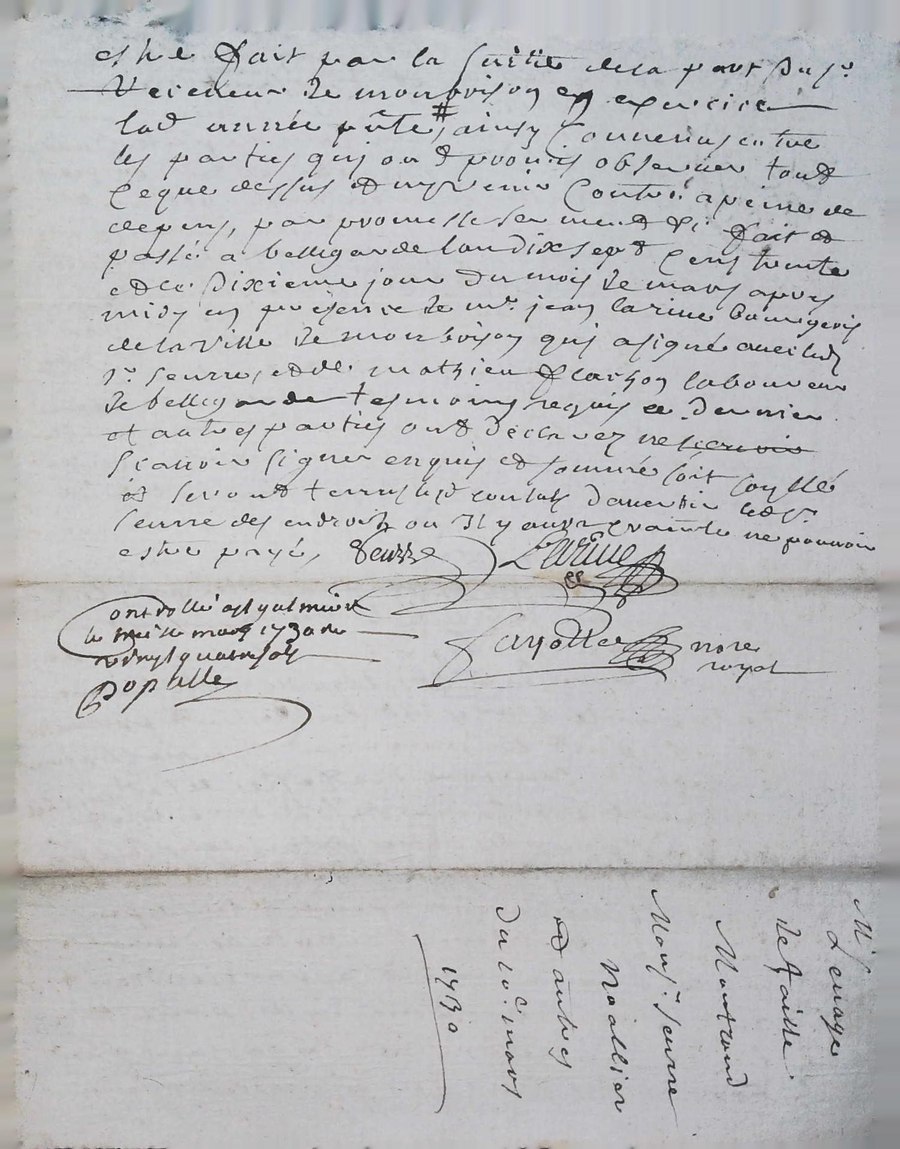 estre fait par la suitte de la part du Sr
Receveur de monbrison en exercice
lad année pnte, # ainsy convenus entre
les parties qui ont promis observer tout
ce que dessus et n'y venir contre a peine de
depens, par promesse serment &c fait et
passé a bellegarde l'an dix sept cens trente
et le dixieme jour du mois de mars apres
midy en presence de mr jean larine bourgeois
de la ville de monbrison qui a signé avec led
sr seurre, et de mathieu flachon laboureur
de bellegarde tesmoins requis ce dernier
et autres parties ont declarez ne
scavoir signer enquis et sommé soit
seront d'avertir led sr
seurre des endroits ou il y aura crainte ne pouvoir
estre payé,
Seurre
Larine
ontrollé a st galmier
le mars 1730 R
vingt quatre sols
populle
notre
royal
Mr Lenage
de taille
Montrond
Monsr seurre
Noallier
et autres
du 10e mars
1730